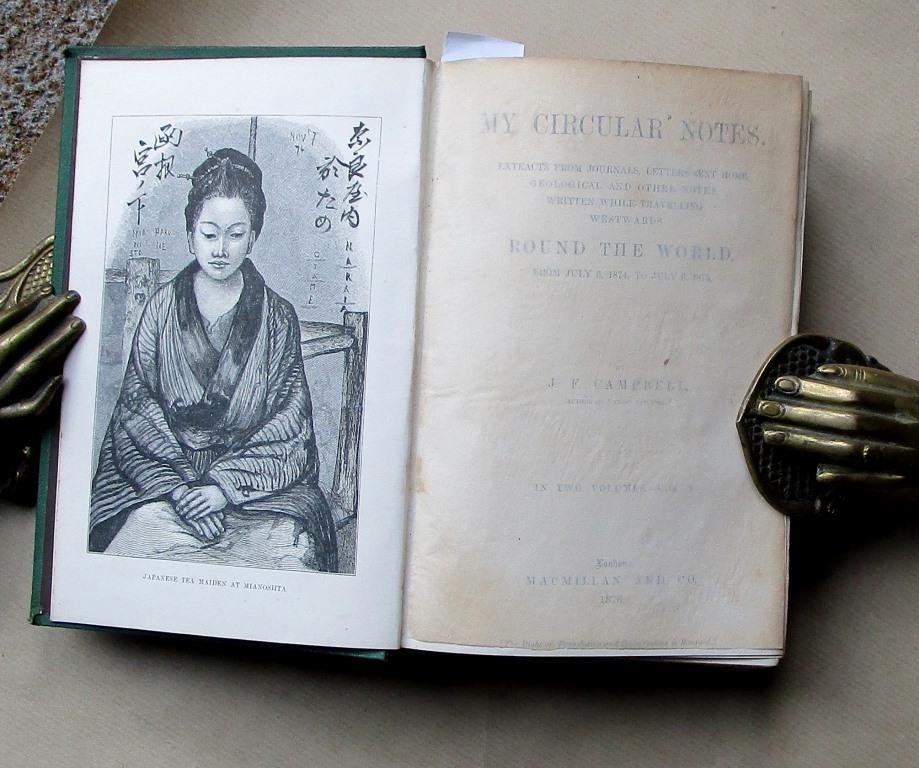 奈良屋内
於たの
函根
宮ノ下
NOV 7
74
NARAIA
OTAME
HAKONE
JAPANESE TEA MAIDEN AT MIANOSHTA
MY CIRCULAR NOTES.
EXTRACTS FROM JOURNALS, LETTERS SENT HOME,
GEOLOGICAL AND OTHER NOTES,
WRITTEN WHILE TRAVELLING
WESTWARDS
ROUND THE WORLD,
FROM JULY 6, 1874, TO JULY 6, 1875.
BY
J. F. CAMPBELL,
AUTHOR OF
IN TWO VOLUMES
London
MACMILLAN AND CO.
1876
[The Right of Translation and Reproduction is Reserved.]